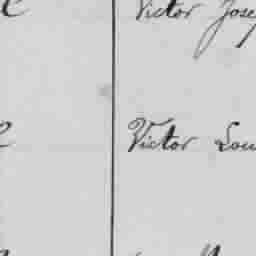 Victor Jose
Victor Lou